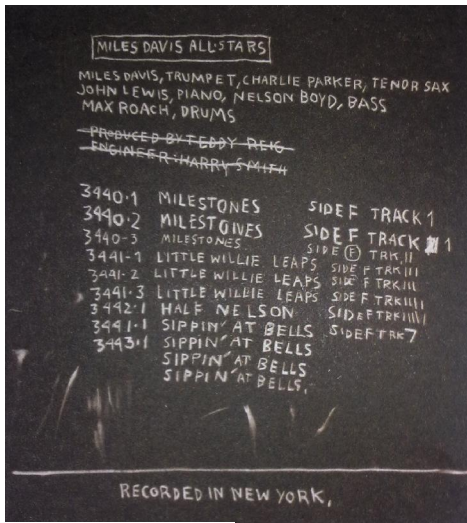 MILES DAVIS ALL·STARS
MILES DAVIS, TRUMPET, CHARLIE PARKER, TENOR SAX
JOHN LEWIS, PIANO, NELSON BOYD, BASS
MAX ROACH, DRUMS
PRODUCED BY TEDDY REIG
ENGINEER: HARRY SMITH
3440·1 MILESTONES SIDE F TRACK 1
3440·2 MILESTONES SIDE F TRACK 1
3440-3 MILESTONES SIDE F TRK, II
3441-1 LITTLE WILLIE LEAPS SIDE F TRK III
3441·2 LITTLE WILLIE LEAPS SIDE F TRK III
3441·3 LITTLE WILLIE LEAPS SIDE F TRK IIII
3442·1 HALF NELSON SIDE F TRK IIIII
3441·1 SIPPIN' AT BELLS SIDE F TRK 7
3443·1 SIPPIN' AT BELLS
SIPPIN' AT BELLS
SIPPIN' AT BELLS,
RECORDED IN NEW YORK,